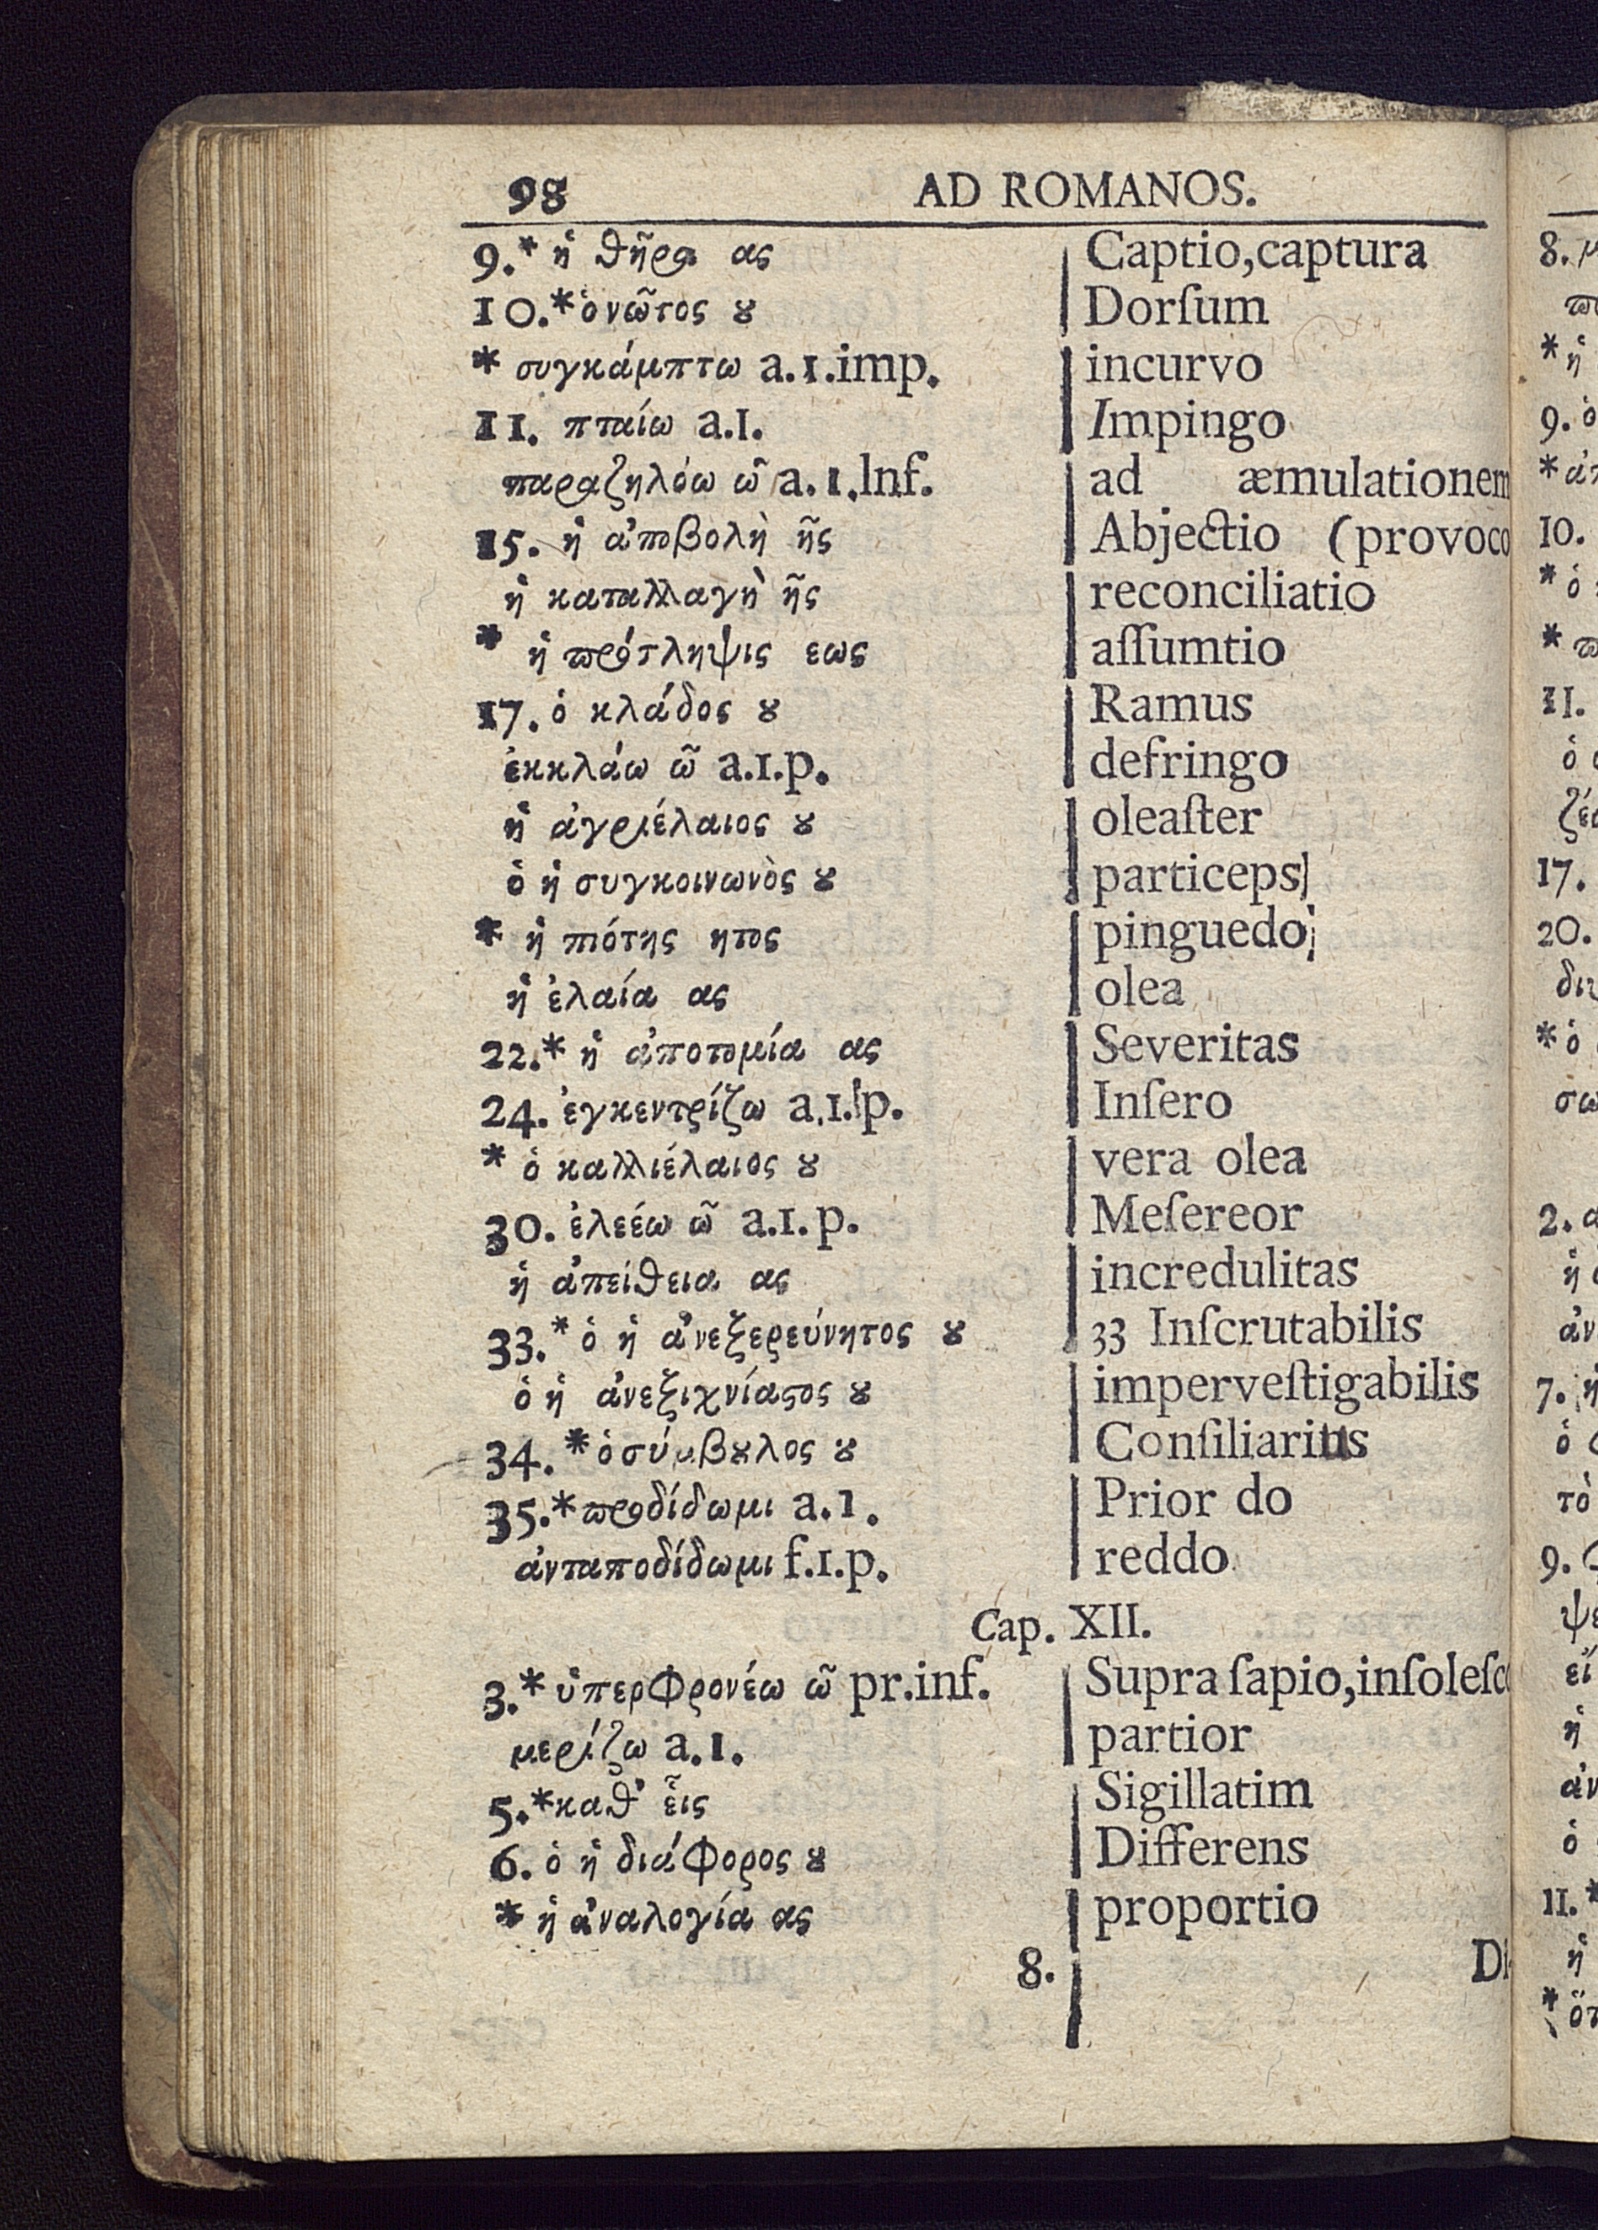 98 AD ROMANOS.
9.* ἡ θῆρα ας Captio, captura
10.* ὁ νῶτος ȣ Dorſum
* συγκάμπτω a.1.imp. incurvo
11. πταίω a.1. Impingo
παραζηλόω ῶ a.1.Inf. ad æmulationem
15. ἡ ἀποβολὴ ῆς Abjectio (provoco
ἡ καταλλαγὴ ῆς reconciliatio
* ἡ πρότληψις εως aſſumtio
17. ὁ κλάδος ȣ Ramus
ἐκκλάω ῶ a.1.p. defringo
ἡ ἀγριέλαιος ȣ oleaſter
ὁ ἡ συγκοινωνὸς ȣ particeps
* ἡ πιότης ητος pinguedo
ἡ ἐλαία ας olea
22.* ἡ ἀποτομία ας Severitas
24. ἐγκεντρίζω a.1.p. Inſero
* ὁ καλλιέλαιος ȣ vera olea
30. ἐλεέω ῶ a.1.p. Meſereor
ἡ ἀπείθεια ας incredulitas
33.* ὁ ἡ ἀνεξερεύνητος ȣ 33 Inſcrutabilis
ὁ ἡ ἀνεξιχνίαϛος ȣ imperveſtigabilis
34. * ὁ σύμβȣλος ȣ Conſiliarius
35.* προδίδωμι a.1. Prior do
ἀνταποδίδωμι f.1.p. reddo
Cap. XII.
3.* ὑπερφρονέω ῶ pr.inf. Supra ſapio, inſoleſc
μερίζω a.1. partior
5.* καθ' εἷς Sigillatim
6. ὁ ἡ διάφορος ȣ Differens
* ἡ ἀναλογία ας proportio
8. Di